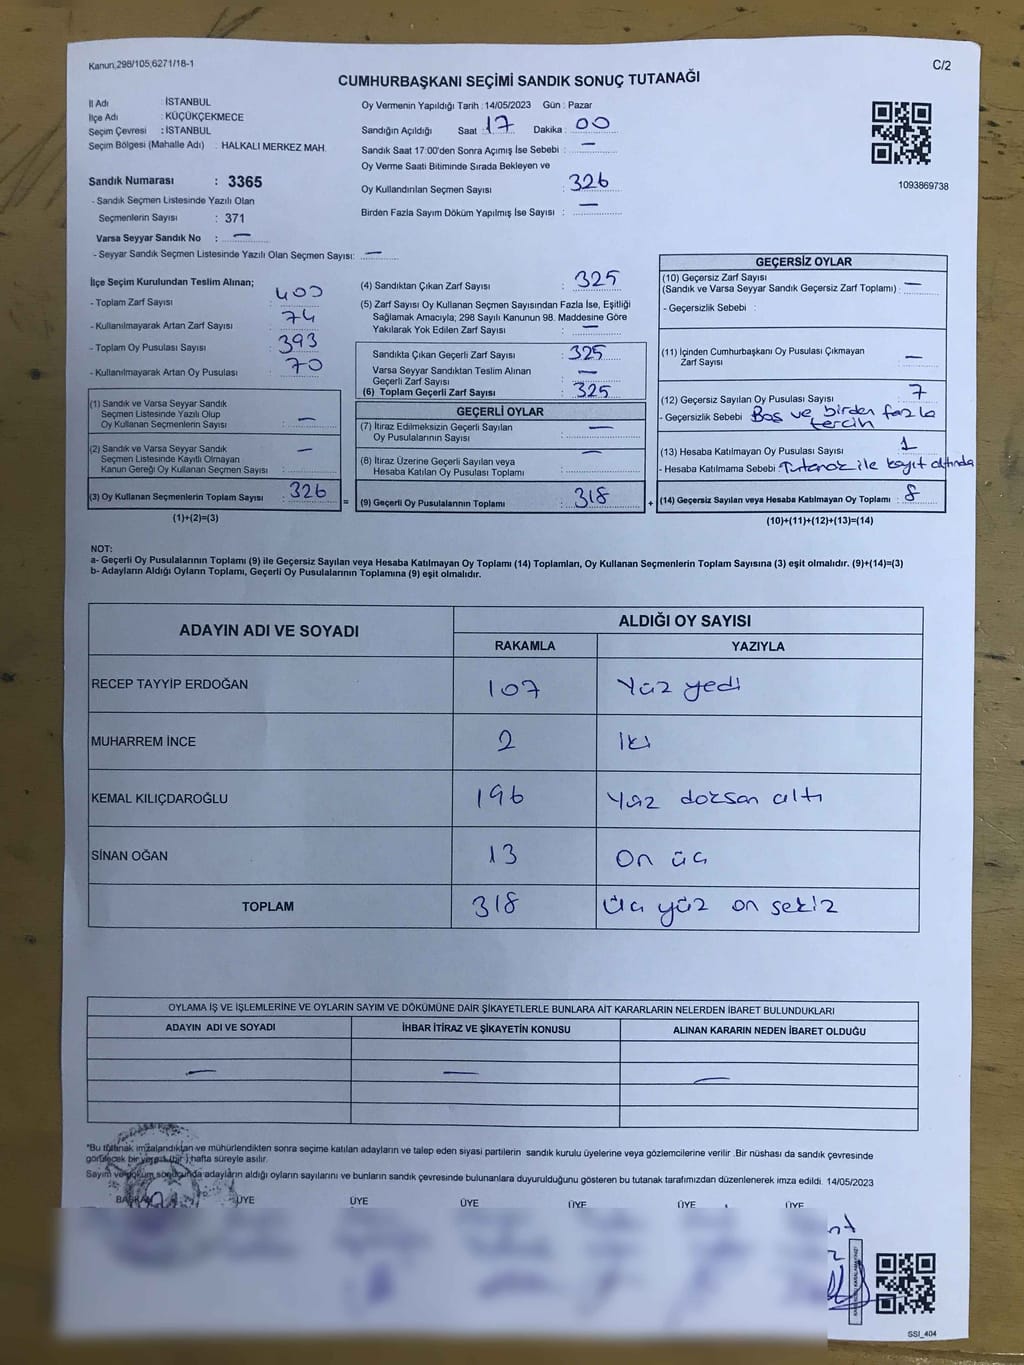 Kanun;298/105;6271/18-1
C/2
CUMHURBAŞKANI SEÇİMİ SANDIK SONUÇ TUTANAĞI
İl Adı : İSTANBUL
İlçe Adı : KÜÇÜKÇEKMECE
Seçim Çevresi : İSTANBUL
Seçim Bölgesi (Mahalle Adı) : HALKALI MERKEZ MAH.
Sandık Numarası : 3365
- Sandık Seçmen Listesinde Yazılı Olan
Seçmenlerin Sayısı : 371
Varsa Seyyar Sandık No : —
- Seyyar Sandık Seçmen Listesinde Yazılı Olan Seçmen Sayısı: —
Oy Vermenin Yapıldığı Tarih : 14/05/2023 Gün : Pazar
Sandığın Açıldığı Saat : 17 Dakika : 00
Sandık Saat 17:00'den Sonra Açılmış İse Sebebi : —
Oy Verme Saati Bitiminde Sırada Bekleyen ve
Oy Kullandırılan Seçmen Sayısı : 326
Birden Fazla Sayım Döküm Yapılmış İse Sayısı : —
1093869738
İlçe Seçim Kurulundan Teslim Alınan;
- Toplam Zarf Sayısı : 400
- Kullanılmayarak Artan Zarf Sayısı : 74
- Toplam Oy Pusulası Sayısı : 393
- Kullanılmayarak Artan Oy Pusulası : 70
(1) Sandık ve Varsa Seyyar Sandık
Seçmen Listesinde Yazılı Olup
Oy Kullanan Seçmenlerin Sayısı : —
(2) Sandık ve Varsa Seyyar Sandık
Seçmen Listesinde Kayıtlı Olmayan
Kanun Gereği Oy Kullanan Seçmen Sayısı : —
(3) Oy Kullanan Seçmenlerin Toplam Sayısı : 326
(1)+(2)=(3)
(4) Sandıktan Çıkan Zarf Sayısı : 325
(5) Zarf Sayısı Oy Kullanan Seçmen Sayısından Fazla İse, Eşitliği
Sağlamak Amacıyla; 298 Sayılı Kanunun 98. Maddesine Göre
Yakılarak Yok Edilen Zarf Sayısı : —
Sandıkta Çıkan Geçerli Zarf Sayısı : 325
Varsa Seyyar Sandıktan Teslim Alınan
Geçerli Zarf Sayısı : —
(6) Toplam Geçerli Zarf Sayısı : 325
GEÇERLİ OYLAR
(7) İtiraz Edilmeksizin Geçerli Sayılan
Oy Pusulalarının Sayısı : —
(8) İtiraz Üzerine Geçerli Sayılan veya
Hesaba Katılan Oy Pusulası Toplamı : —
= (9) Geçerli Oy Pusulalarının Toplamı : 318 +
GEÇERSİZ OYLAR
(10) Geçersiz Zarf Sayısı
(Sandık ve Varsa Seyyar Sandık Geçersiz Zarf Toplamı) : —
- Geçersizlik Sebebi :
(11) İçinden Cumhurbaşkanı Oy Pusulası Çıkmayan
Zarf Sayısı : —
(12) Geçersiz Sayılan Oy Pusulası Sayısı : 7
- Geçersizlik Sebebi Boş ve birden fazla
tercih
(13) Hesaba Katılmayan Oy Pusulası Sayısı : 1
- Hesaba Katılmama Sebebi : Tutanak ile kayıt altında
(14) Geçersiz Sayılan veya Hesaba Katılmayan Oy Toplamı : 8
(10)+(11)+(12)+(13)=(14)
NOT:
a- Geçerli Oy Pusulalarının Toplamı (9) ile Geçersiz Sayılan veya Hesaba Katılmayan Oy Toplamı (14) Toplamları, Oy Kullanan Seçmenlerin Toplam Sayısına (3) eşit olmalıdır. (9)+(14)=(3)
b- Adayların Aldığı Oyların Toplamı, Geçerli Oy Pusulalarının Toplamına (9) eşit olmalıdır.
ADAYIN ADI VE SOYADI
ALDIĞI OY SAYISI
RAKAMLA YAZIYLA
RECEP TAYYİP ERDOĞAN 107 Yüz yedi
MUHARREM İNCE 2 İki
KEMAL KILIÇDAROĞLU 196 Yüz doksan altı
SİNAN OĞAN 13 On üç
TOPLAM 318 Üç yüz on sekiz
OYLAMA İŞ VE İŞLEMLERİNE VE OYLARIN SAYIM VE DÖKÜMÜNE DAİR ŞİKAYETLERLE BUNLARA AİT KARARLARIN NELERDEN İBARET BULUNDUKLARI
ADAYIN ADI VE SOYADI İHBAR İTİRAZ VE ŞİKAYETİN KONUSU ALINAN KARARIN NEDEN İBARET OLDUĞU
— — —
*Bu tutanak imzalandıktan ve mühürlendikten sonra seçime katılan adayların ve talep eden siyasi partilerin sandık kurulu üyelerine veya gözlemcilerine verilir .Bir nüshası da sandık çevresinde
görülecek bir yere bir hafta süreyle asılır.
Sayım ve döküm sonucunda adayların aldığı oyların sayılarını ve bunların sandık çevresinde bulunanlara duyurulduğunu gösteren bu tutanak tarafımızdan düzenlenerek imza edildi. 14/05/2023
BAŞKAN ÜYE ÜYE ÜYE ÜYE ÜYE ÜYE
SSI_404